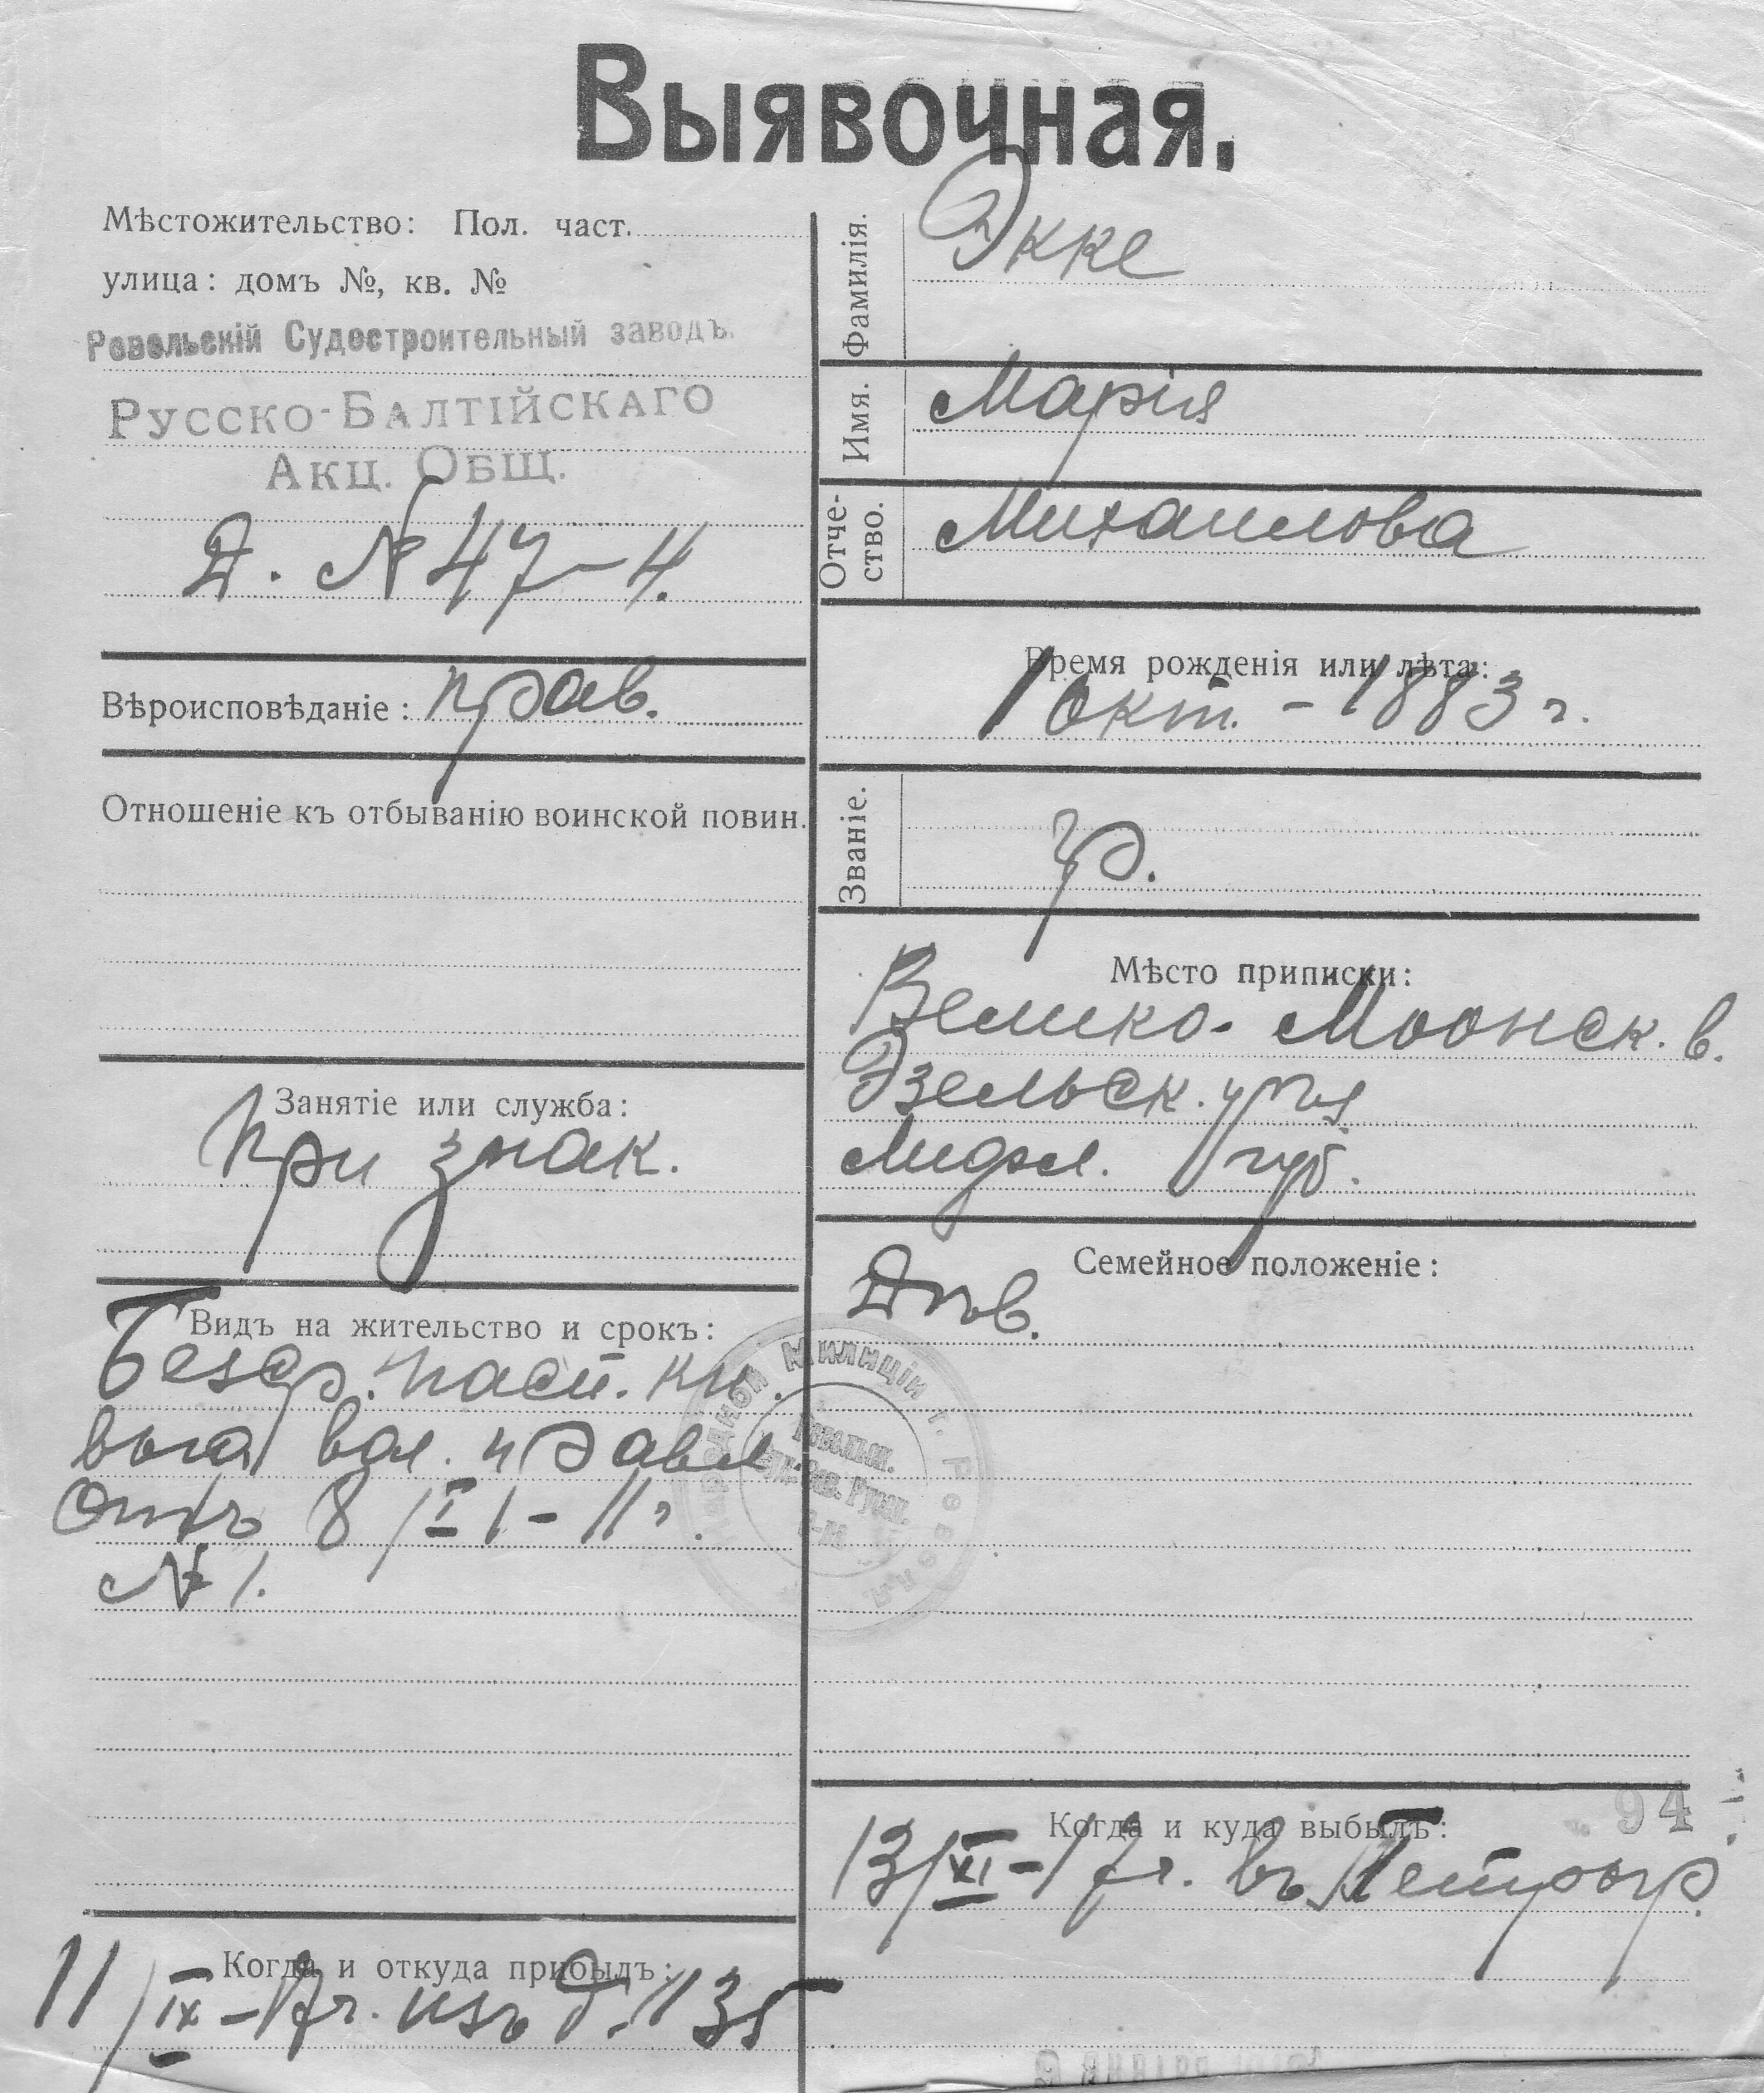 Выявочная.
Мѣстожительство: Пол. част.
улица: домъ №, кв. №
Ревельскій Судостроительный заводъ.
Русско-Балтійскаго
Акц. Общ.
Д. № 47-4.
Вѣроисповѣданіе: прав.
Отношеніе къ отбыванію воинской повин.
Занятіе или служба:
При знак.
Видъ на жительство и срокъ:
Безср. пасп. кн.
выд вол. правл.
отъ 8/II - 11 г.
№ 1.
Когда и откуда прибылъ:
11/IX - 17 г. изъ д. 1135
Фамилія.
Экке
Имя.
Марія
Отче-
ство.
Михаилова
Время рожденія или лѣта:
1 окт. - 1883 г.
Званіе.
гр.
Мѣсто приписки:
Велико-Моонск. в.
Эзельск. у.
Лифл. губ.
Семейное положеніе:
Дѣв.
Народной Милиціи г. Ревеля
Ревельск.
94
Когда и куда выбылъ:
13/XI - 17 г. въ Петрогр.